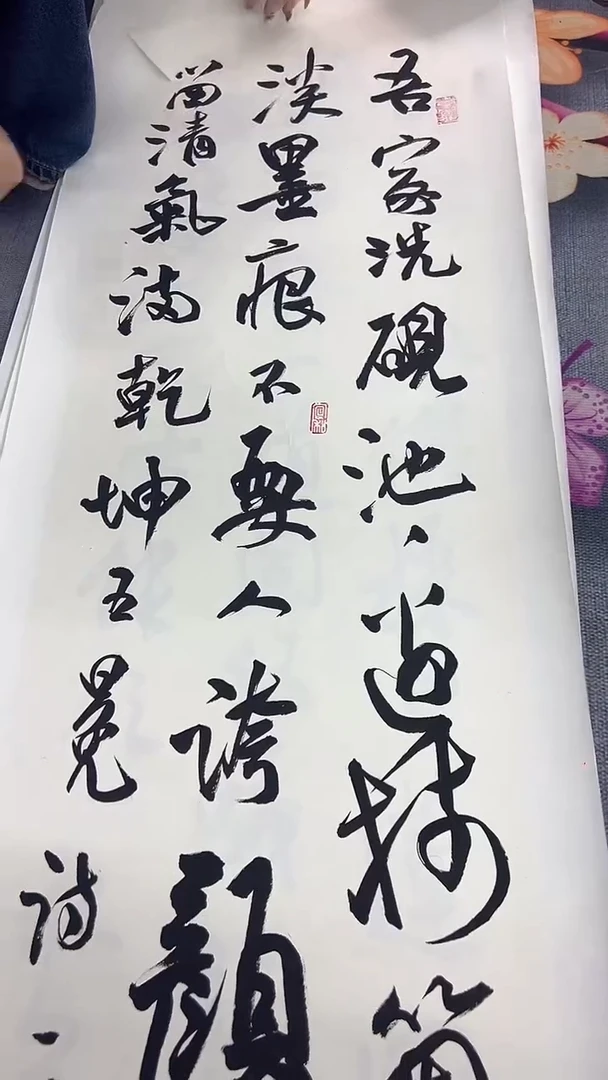 吾家洗硯池邊樹箇
淡墨痕不要人誇顏
留清氣滿乾坤王冕詩一